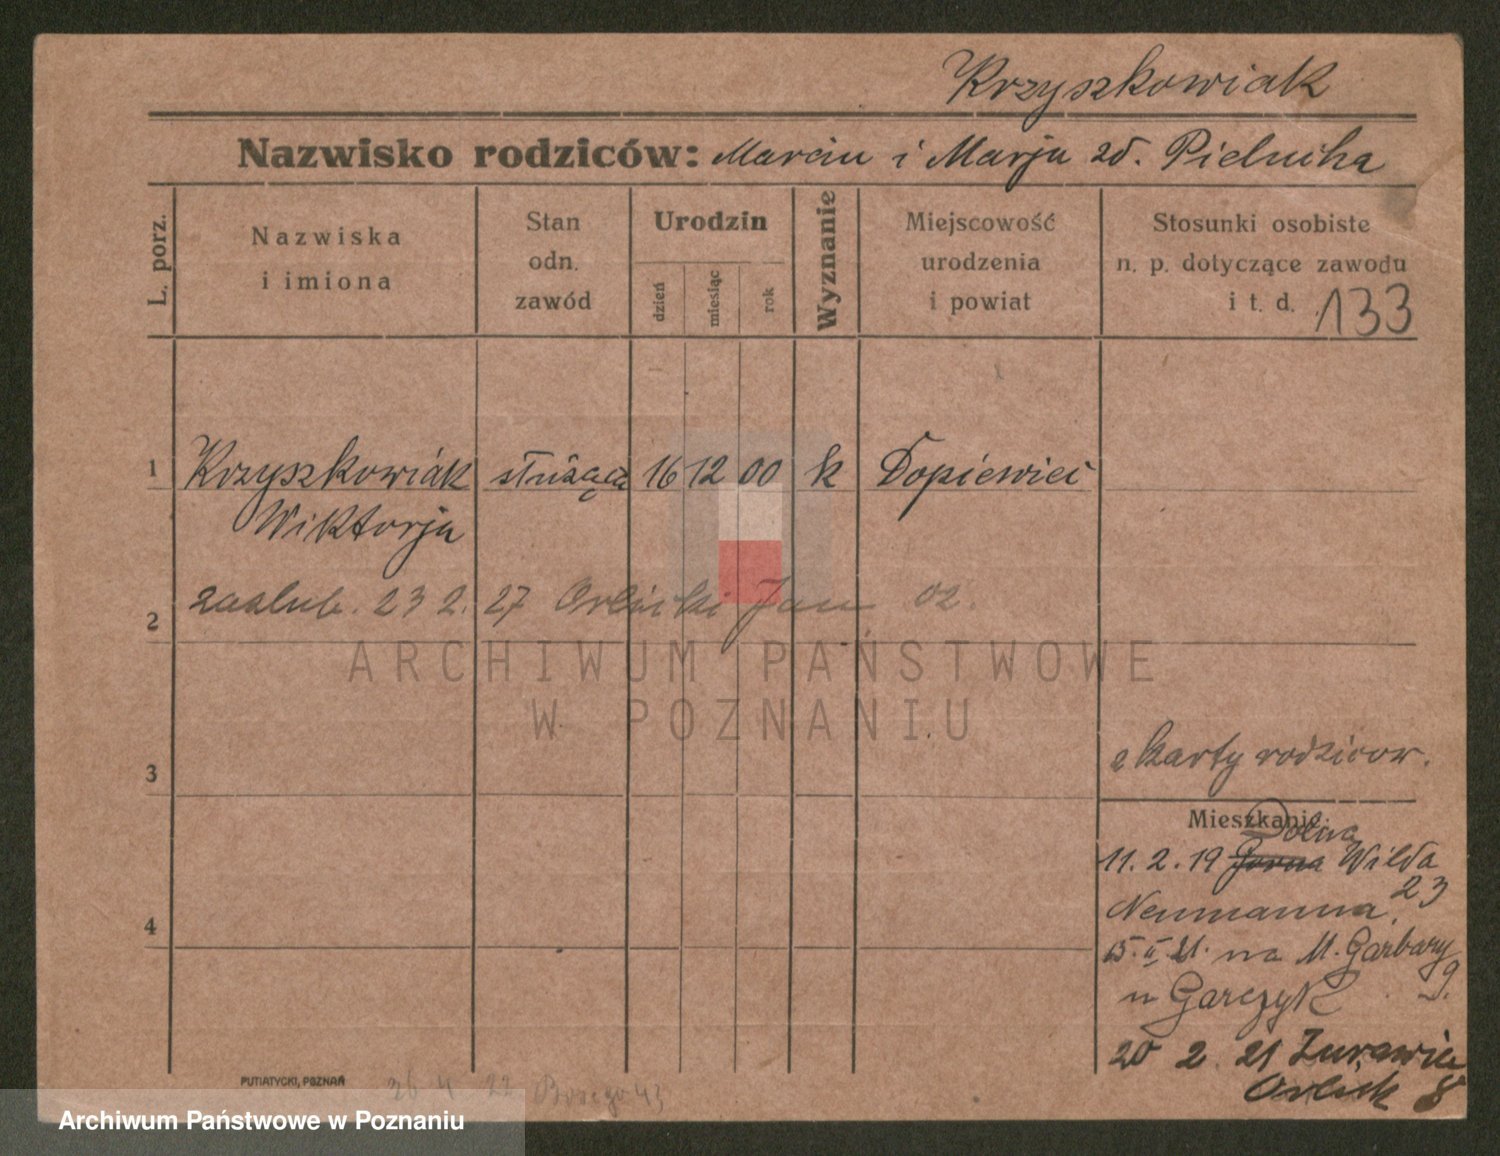 Krzyszkowiak
Nazwisko rodziców: Marcin i Marja zd. Pielucha
L. porz.
Nazwiska
i imiona
Stan
odn.
zawód
Urodzin
dzień
miesiąc
rok
Wyznanie
Miejscowość
urodzenia
i powiat
Stosunki osobiste
n. p. dotyczące zawodu
i t. d. 133
1 Krzyszkowiak służąca 16 12 00 k Dopiewiec
Wiktorja
zaślub. 23 2. 27 Orlicki Jan 02.
2
ARCHIWUM PAŃSTWOWE
W POZNANIU
z karty rodziców.
3
Mieszkanie:
Dolna
11. 2. 19 Górna Wilda
23
4 Neumanna
15. II. 21. na M. Garbary
u Garczyk 9.
20 2. 21 Żurawia
8
PUTIATYCKI, POZNAŃ
26 4 22 43
Archiwum Państwowe w Poznaniu